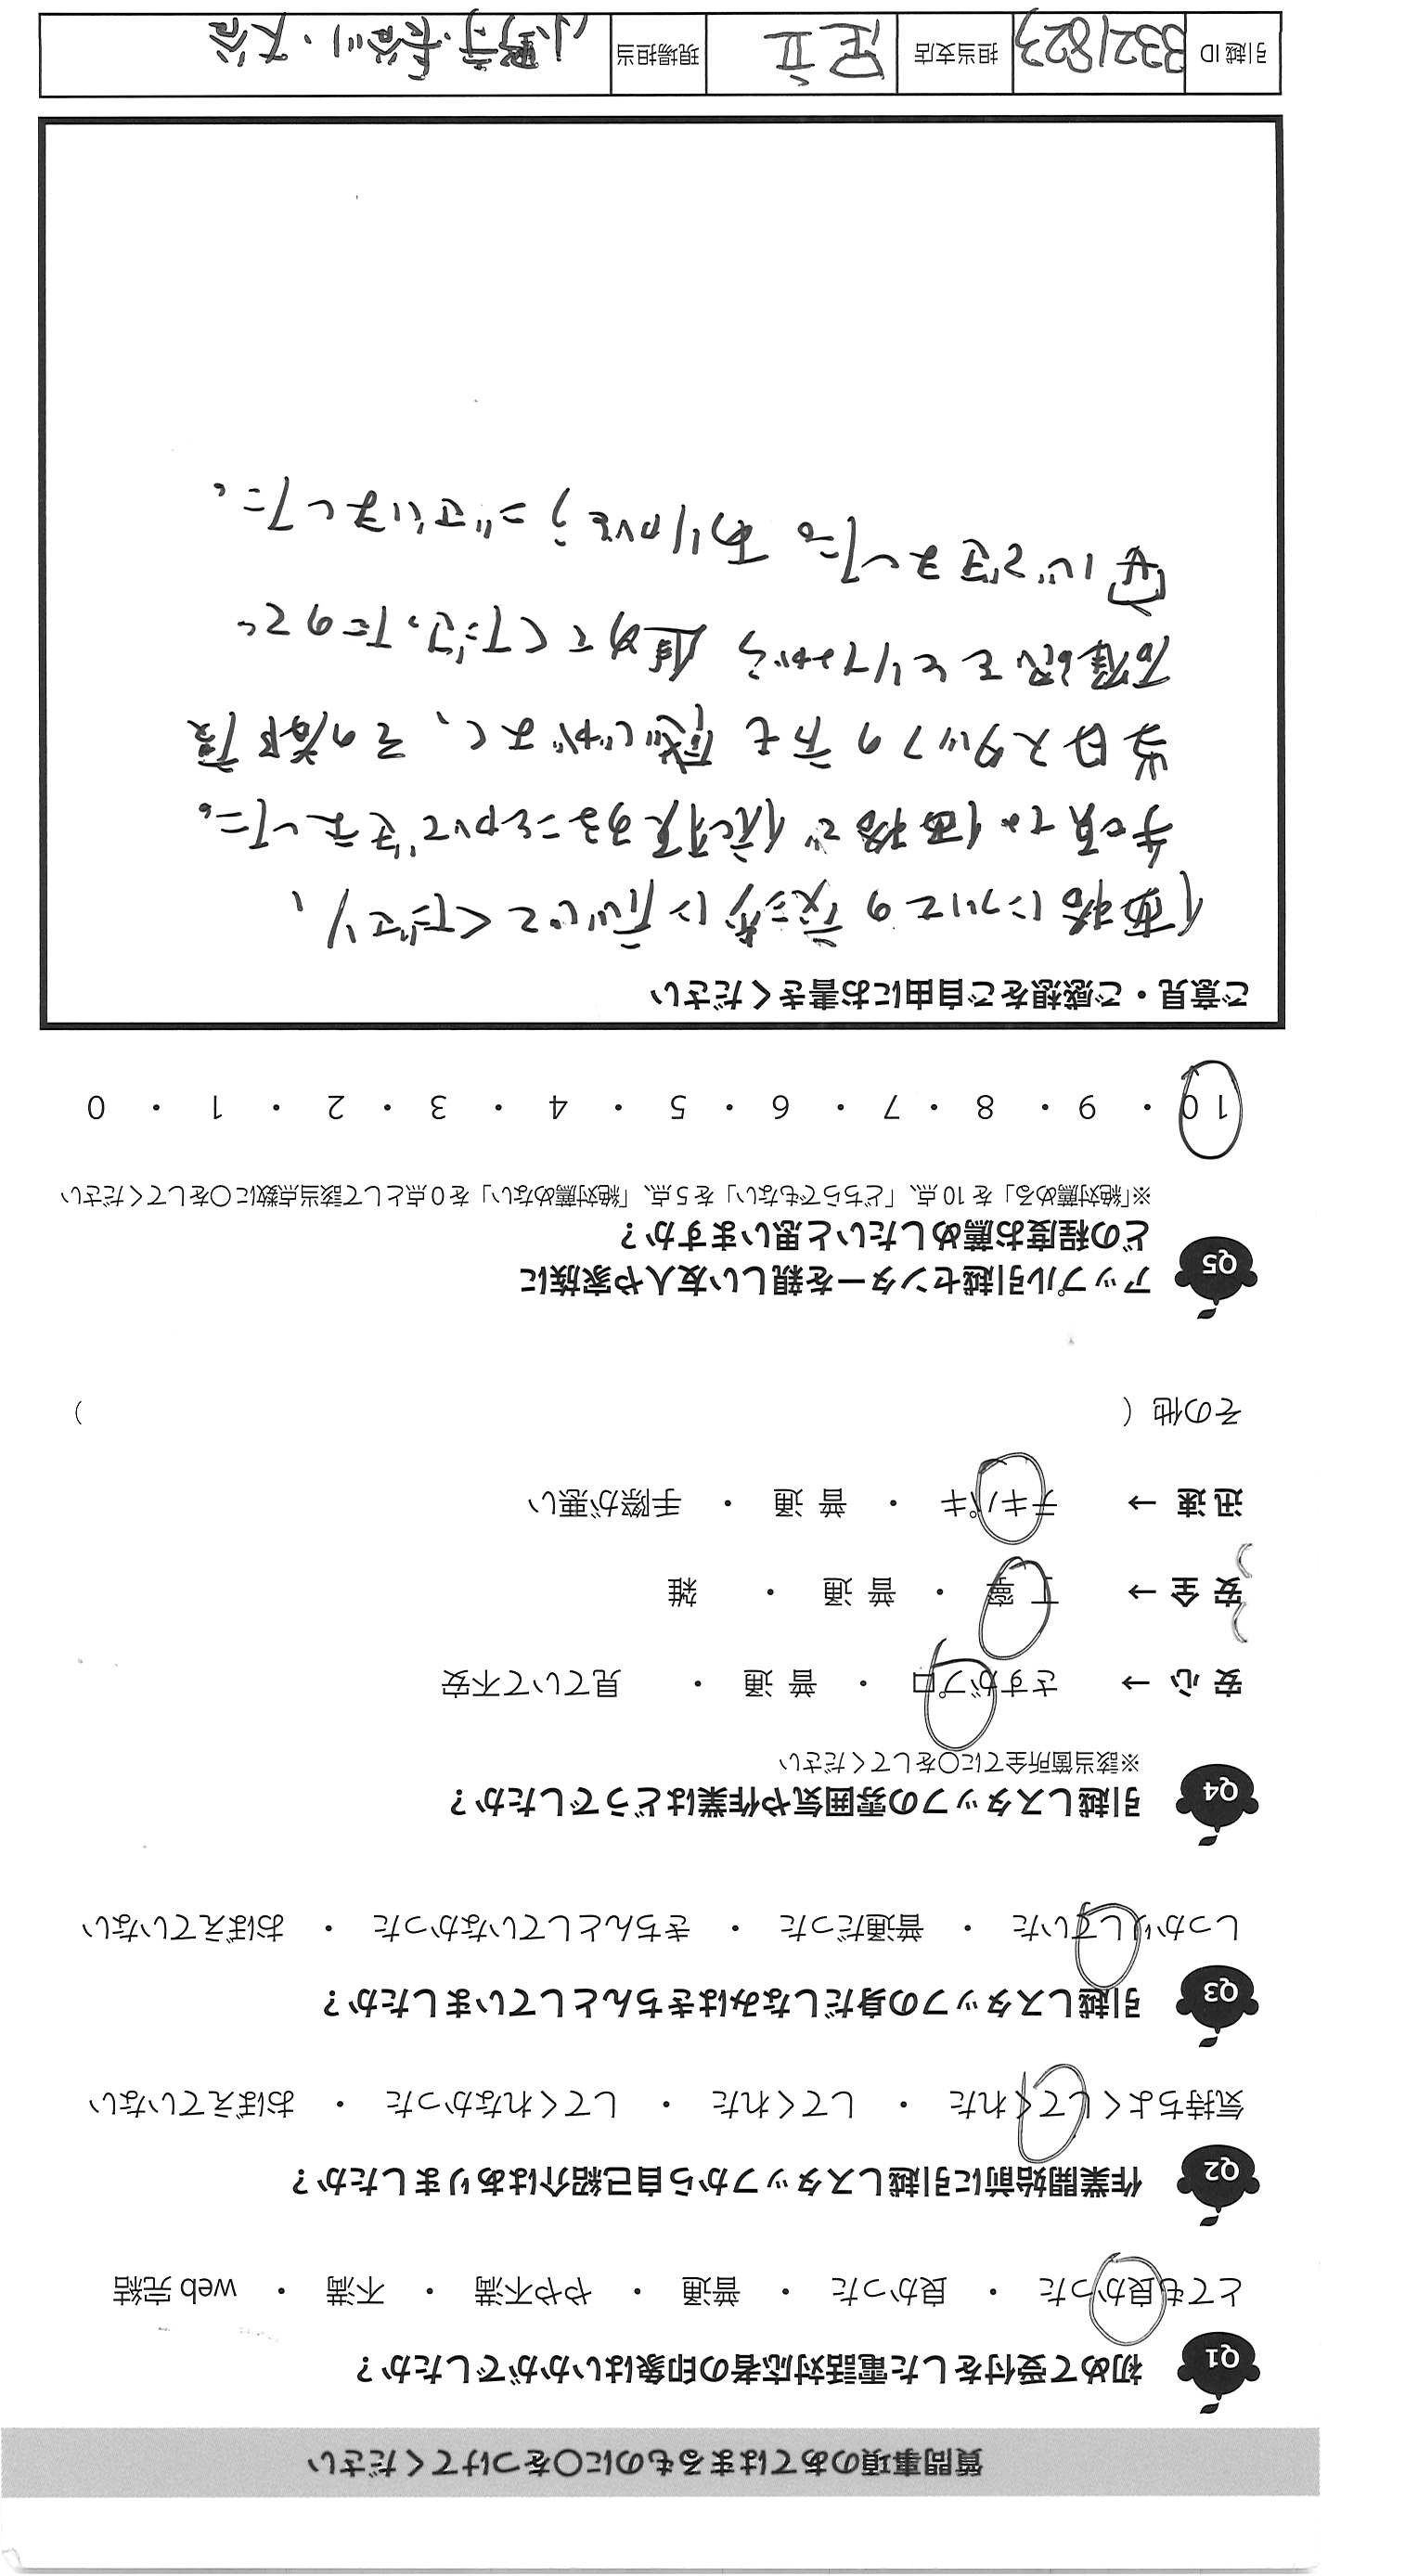 質問事項のあてはまるものに〇をつけてください
Q1 初めて受付をした電話対応者の印象はいかがでしたか？
とても良かった ・ 良かった ・ 普通 ・ やや不満 ・ 不満 ・ web 完結
Q2 作業開始前に引越しスタッフから自己紹介はありましたか？
気持ちよくしてくれた ・ してくれた ・ してくれなかった ・ おぼえていない
Q3 引越しスタッフの身だしなみはきちんとしていましたか？
しっかりしていた ・ 普通だった ・ きちんとしていなかった ・ おぼえていない
Q4 引越しスタッフの雰囲気や作業はどうでしたか？
※該当箇所全てに〇をしてください
安 心 → さすがプロ ・ 普 通 ・ 見ていて不安
安 全 → 丁 寧 ・ 普 通 ・ 雑
迅 速 → テキパキ ・ 普 通 ・ 手際が悪い
その他（ ）
Q5 アップル引越センターを親しい友人や家族に
どの程度お薦めしたいと思いますか？
※「絶対薦める」を 10 点、「どちらでもない」を 5 点、「絶対薦めない」を 0 点として該当点数に〇をしてください
10 ・ 9 ・ 8 ・ 7 ・ 6 ・ 5 ・ 4 ・ 3 ・ 2 ・ 1 ・ 0
ご意見・ご感想をご自由にお書きください
価格についての交渉に応じてくださり、
価格で依頼することができました。
当日スタッフの方も感じがよく、その都度
確認をとりながら進めてくださったので
安心できました。ありがとうございました。
引越 ID 3321823 担当支店 足立 現場担当 小野寺・長谷川・大谷